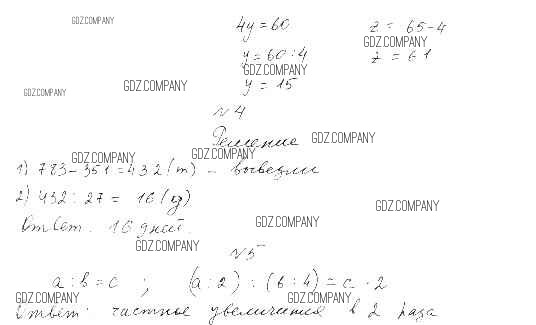 GDZ.COMPANY
4y = 60 z = 65 - 4
GDZ.COMPANY
y = 60 : 4 z = 61
GDZ.COMPANY
y = 15
GDZ.COMPANY
GDZ.COMPANY
№ 4
Решение
GDZ.COMPANY
GDZ.COMPANY
GDZ.COMPANY
1) 783 - 351 = 432 (т) - вывезли
2) 432 : 27 = 16 (д)
GDZ.COMPANY
Ответ: 16 дней.
GDZ.COMPANY
GDZ.COMPANY
№ 5
a : b = c ; (a : 2) : (b : 4) = c · 2
GDZ.COMPANY
GDZ.COMPANY
Ответ: частное увеличится в 2 раза